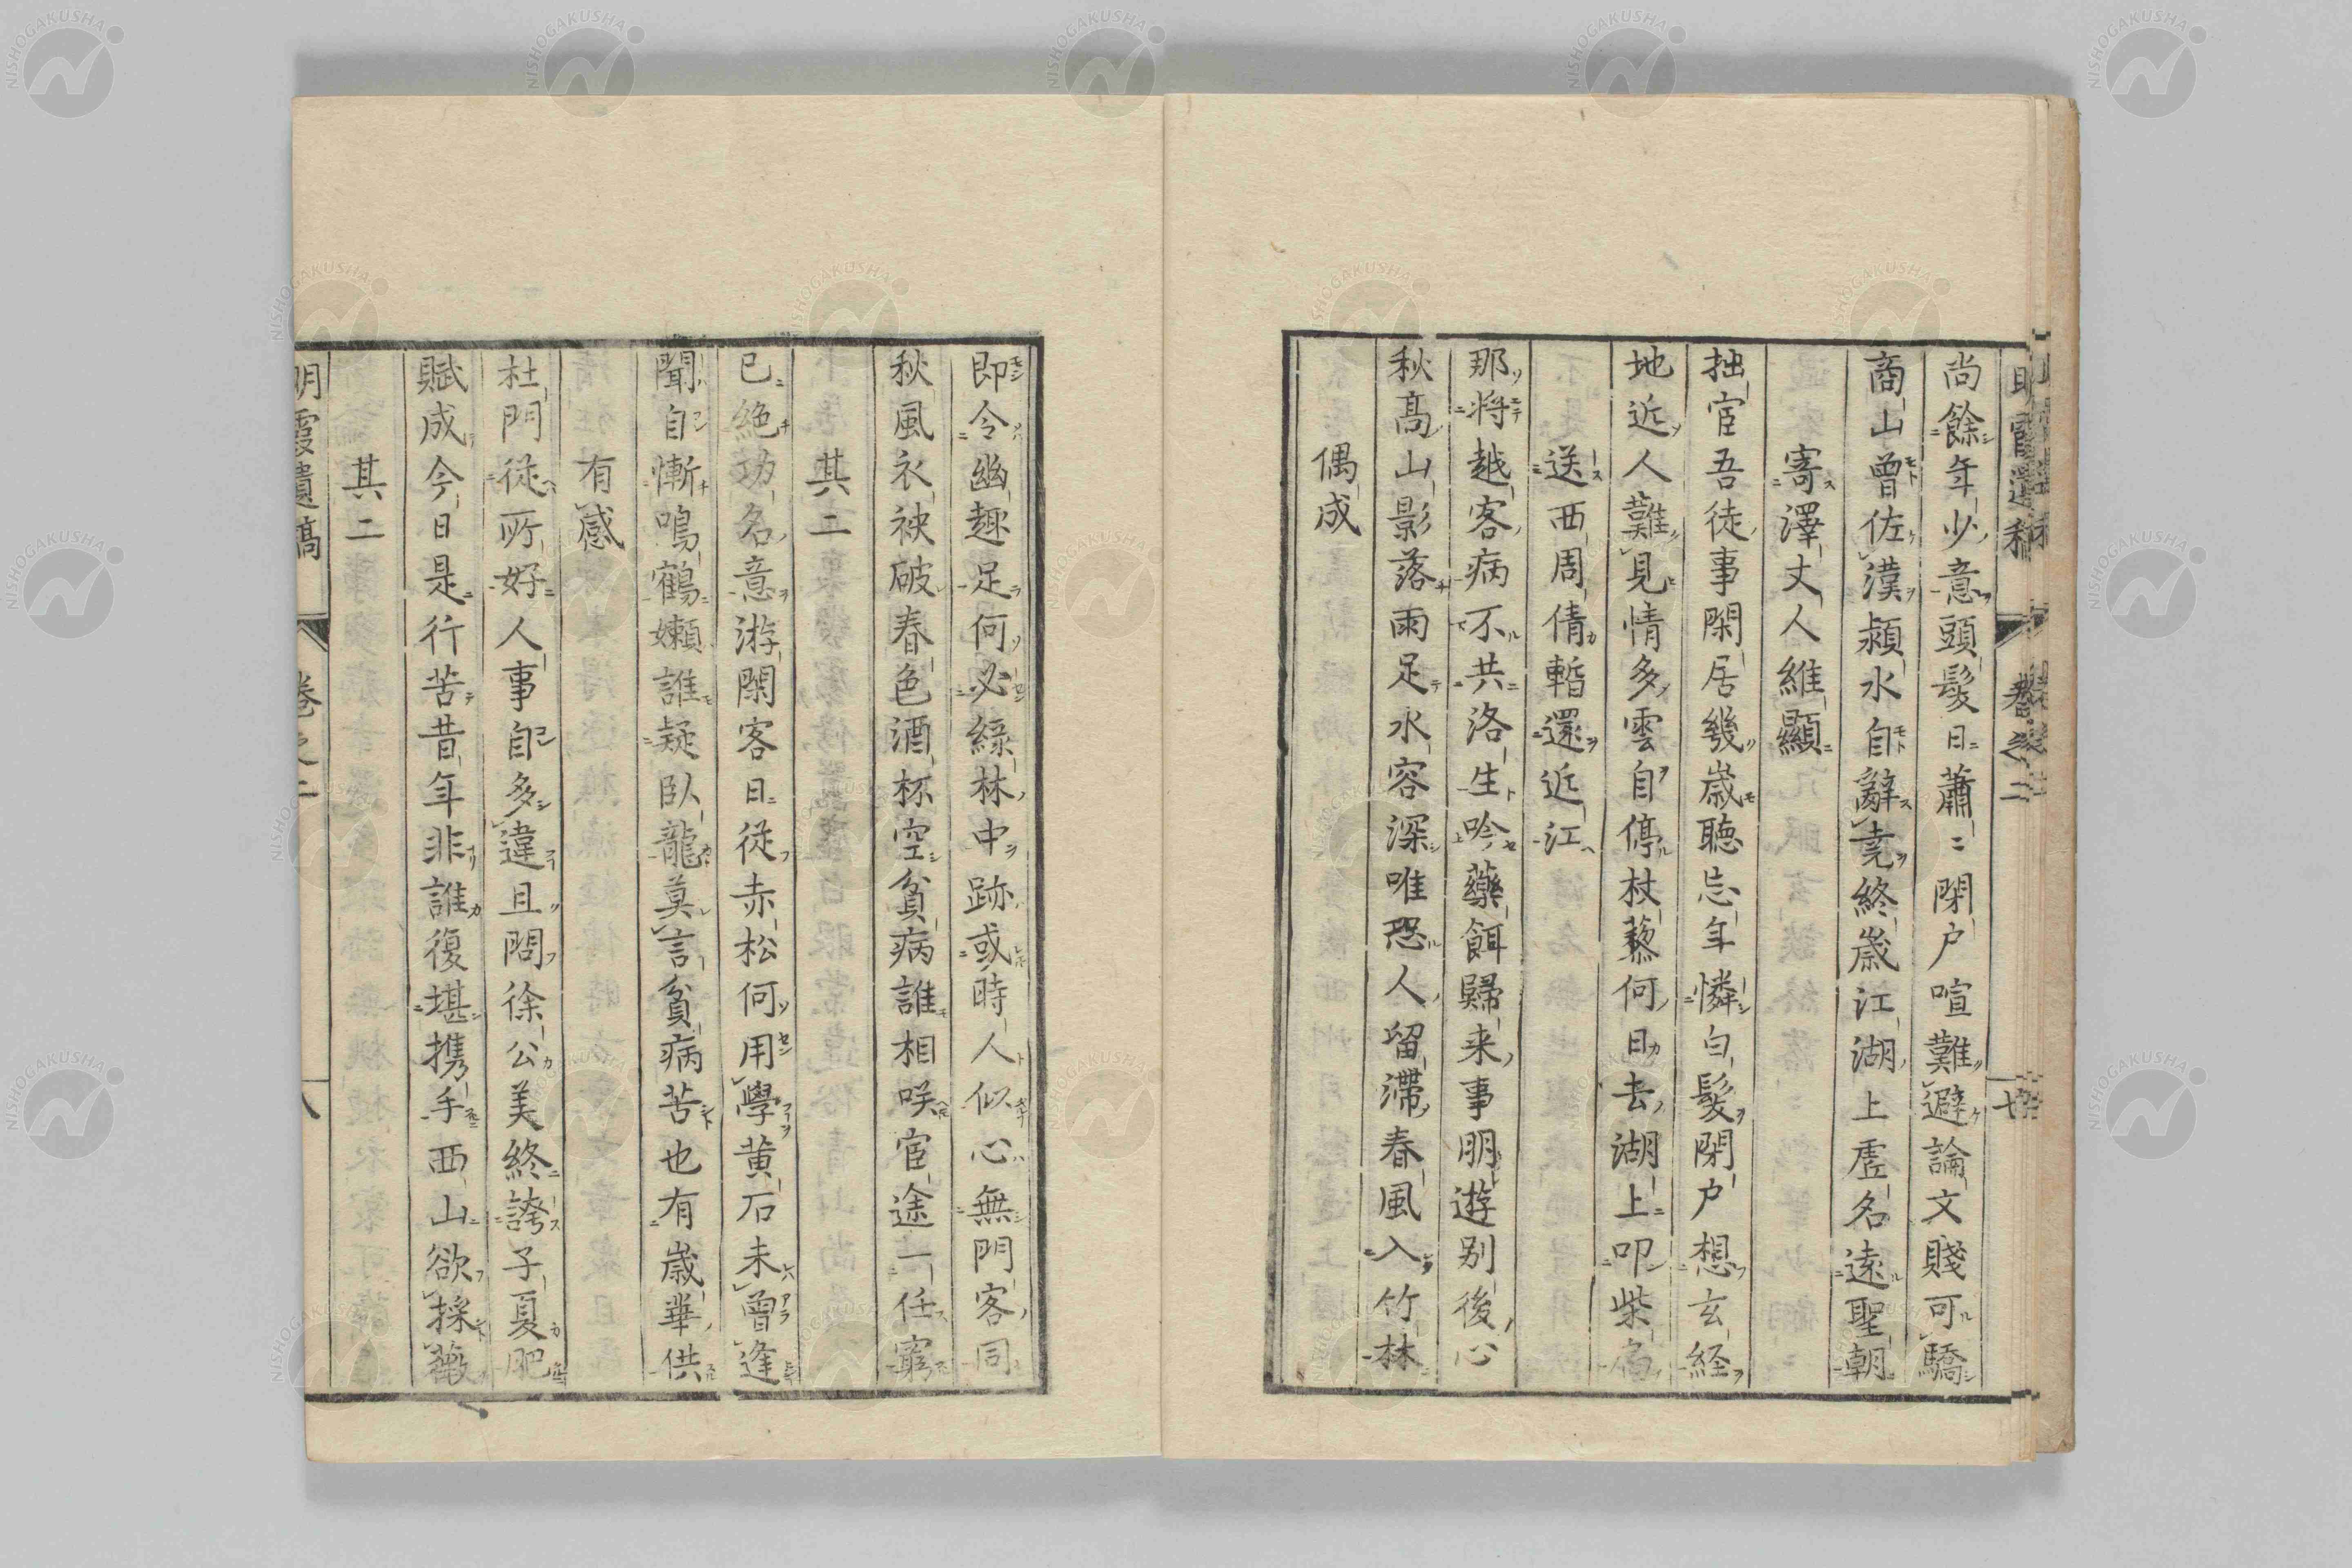 尚餘年少意頭髮日蕭〻閉户喧難避論文賤可驕
商山曾佐漢潁水自辭堯終歲江湖上虛名遠聖朝
寄澤丈人維顯
拙宦吾徒事閑居幾歲聽忘年憐白髮閉户想玄経
地近人難見情多雲自停杖藜何日去湖上叩柴扃
送西周倩暫還近江
那将越客病不共洛生吟藥餌歸来事朋遊别後心
秋髙山影落雨足水容深唯恐人留滯春風入竹林
偶成
即今幽趣足何必緑林中跡或時人似心無門客同
秋風衣袂破春色酒杯空貧病誰相咲宦途一任窮
其二
已絶功名意游閑客日従赤松何用學黄石未曾逢
聞自慚鳴鶴嬾誰疑臥龍莫言貧病苦也有歲華供
有感
杜門従所好人事自多違且問徐公美終誇子夏肥
賦成今日是行苦昔年非誰復堪携手西山欲採薇
其二
明霞遺稿 卷之二 八
NISHOGAKUSHA